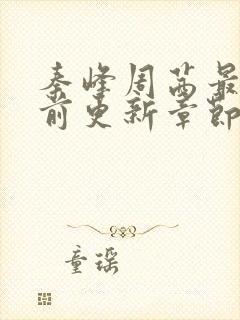 秦峰周茜最
前更新章节
童瑶